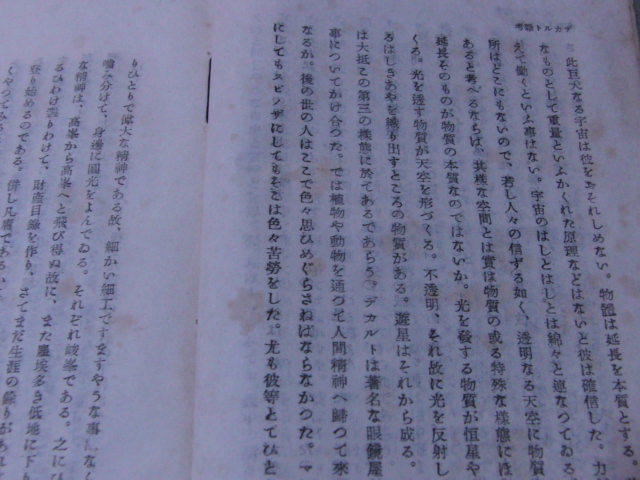 デカルト語考
此巨大なる宇宙は彼をおそれしめない。物體は延長を本質とする。力
なものとして重量といふかくれた原理などはないと彼は確信した。
えて働くといふ事はない。宇宙のはしとはしとは綿々と連なつてゐる
所はどこにもないので、若し人々の信ずる如く、透明なる天空に物質
あると考へるならば、其樣な空間とは實は物質の或る特殊な樣態にほ
延長そのものが物質の本質なのではないか。光を發する物質が恒星や
くる。光を透す物質が天空を形づくる。不透明、それ故に光を反射し
るはしきあやを織り出すところの物質がある。遊星はそれから成る。
は大抵この第三の樣態に於てあるであらう。デカルトは著名な眼鏡屋
事についてかけ合つた。では植物や動物を通つて人間精神へ歸つて來
なるか。後の世の人はここで色々思ひめぐらさねばならなかつた。マ
にしてもスピノザにしてもそこは色々苦勞をした。尤も彼等とてひと
りひとりで偉大な精神である故、細かい細工ですますやうな事はなく
噛み分けて、身邊に圓光をよんでゐる。それぞれ峻峯である。之にひ
な精神は、高峯から高峯へと飛び得ぬ故に、また塵埃多き低地に下り
るひわけ曇りわけて、財産目錄を作り、さてまだ生涯の餘りがあれ
登り始めるのである。併し凡庸である
くやつてみる